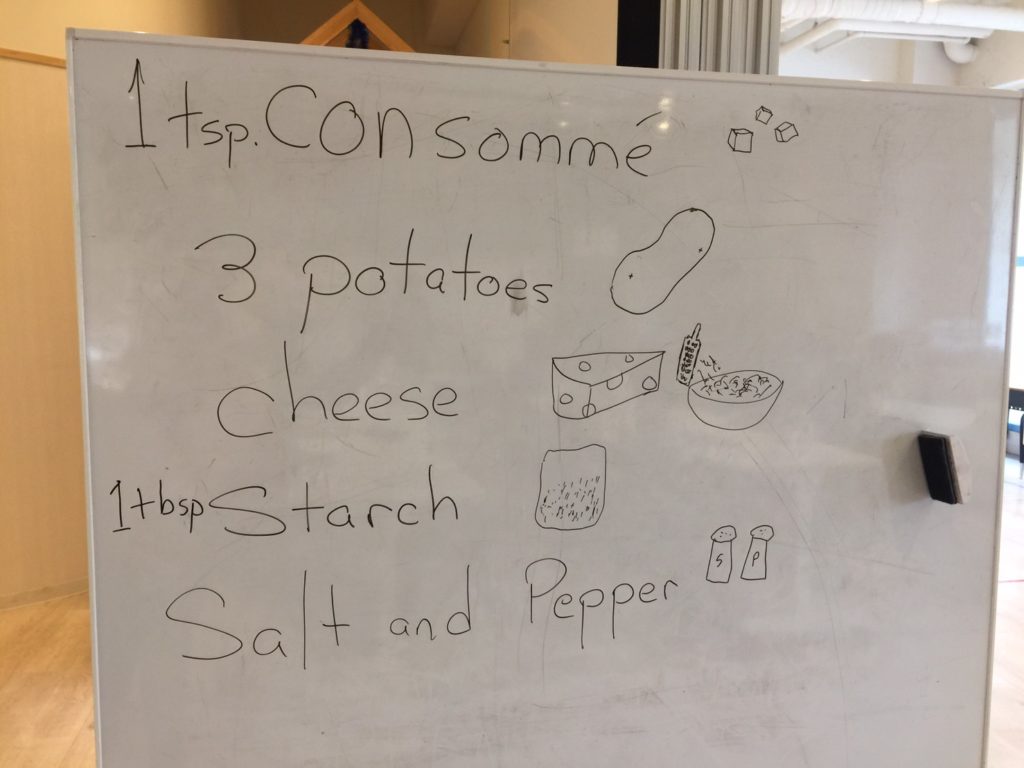 1 tsp. Consommé
3 potatoes
cheese
1 tbsp Starch
Salt and Pepper
S P